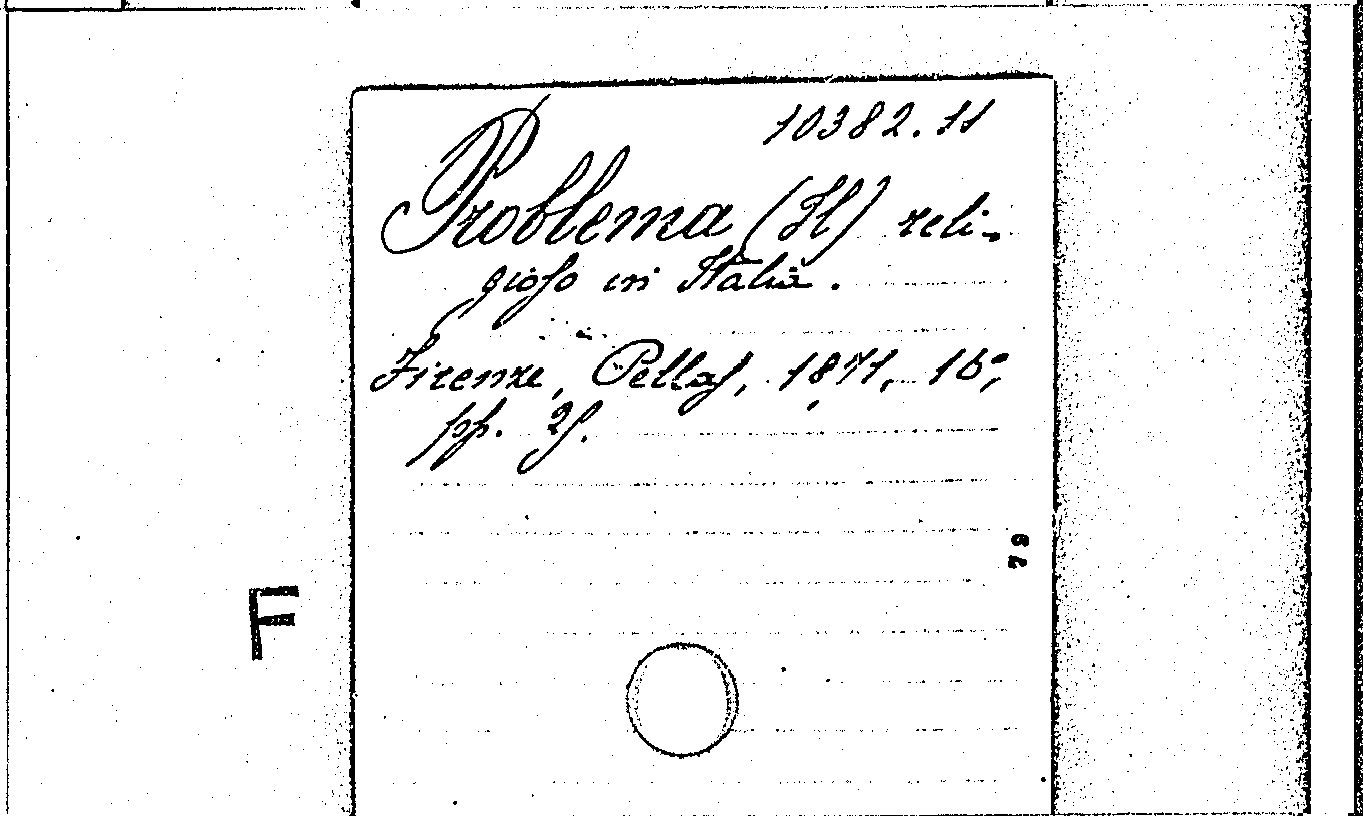 10382.11
Problema (Il) reli-
gioso in Italia.
Firenze, Pellas, 1871, 16°,
pp.
79
F